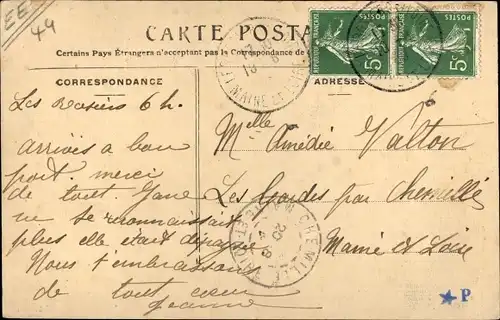 EE
44
CARTE POSTA
Certains Pays Étrangers n'acceptent pas la Correspondance de
CORRESPONDANCE
ADRESSE
RÉPUBLIQUE FRANÇAISE
POSTES
5c
POSTES
5c
MAINE ET
Les Rosiers 6 h.
arrivés a bon
port. merci
de tout. Jane
ne se reconnaissait
plus elle était dépaysée
Nous t'embrassons
de tout cœur
Jeanne
Mlle Amédée Valton
Les Gardes par Chemillé
Maine et Loire
CHEMILLÉ
20-8
P